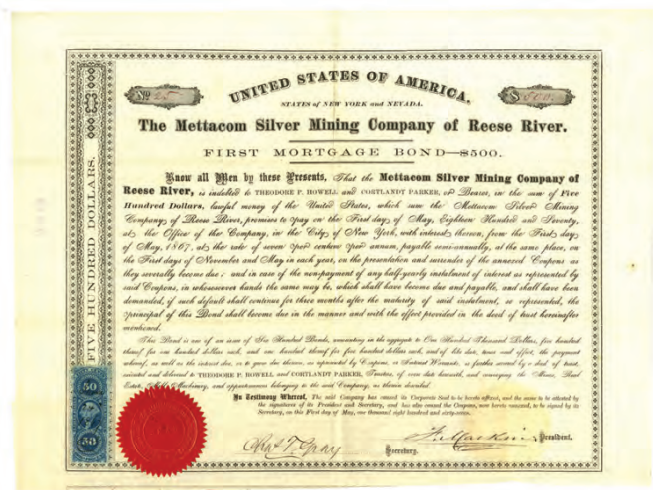 No. 25
$ 500.
UNITED STATES OF AMERICA,
STATES of NEW YORK and NEVADA.
The Mettacom Silver Mining Company of Reese River.
FIRST MORTGAGE BOND—$500.
Know all Men by these Presents, That the Mettacom Silver Mining Company of
Reese River, is indebted to THEODORE P. HOWELL and CORTLANDT PARKER, or Bearer, in the sum of Five
Hundred Dollars, lawful money of the United States, which sum the Mettacom Silver Mining
Company of Reese River, promises to pay on the First day of May, Eighteen Hundred and Seventy,
at the Office of the Company, in the City of New York, with interest thereon, from the First day
of May, 1867, at the rate of seven per centum per annum, payable semi-annually, at the same place, on
the First days of November and May in each year, on the presentation and surrender of the annexed Coupons as
they severally become due: and in case of the non-payment of any half-yearly instalment of interest as represented by
said Coupons, in whosesoever hands the same may be, which shall have become due and payable, and shall have been
demanded, if such default shall continue for three months after the maturity of said instalment, so represented, the
principal of this Bond shall become due in the manner and with the effect provided in the deed of trust hereinafter
mentioned.
This Bond is one of an issue of Six Hundred Bonds, amounting in the aggregate to One Hundred Thousand Dollars, five hundred
thereof for one hundred dollars each, and one hundred thereof for five hundred dollars each, and of like date, tenor and effect, the payment
whereof, as well as the interest due, or to grow due thereon, as represented by Coupons, or Interest Warrants, is further secured by a deed of trust,
executed and delivered to THEODORE P. HOWELL and CORTLANDT PARKER, Trustees, of even date herewith, and conveying the Mines, Real
Estate, Mill, Machinery, and appurtenances belonging to the said Company, as therein described.
In Testimony Whereof, The said Company has caused its Corporate Seal to be hereto affixed, and the same to be attested by
the signatures of its President and Secretary, and has also caused the Coupons, now hereto annexed, to be signed by its
Secretary, on this First day of May, one thousand eight hundred and sixty-seven.
President.
Secretary.
FIVE HUNDRED DOLLARS.
50
50